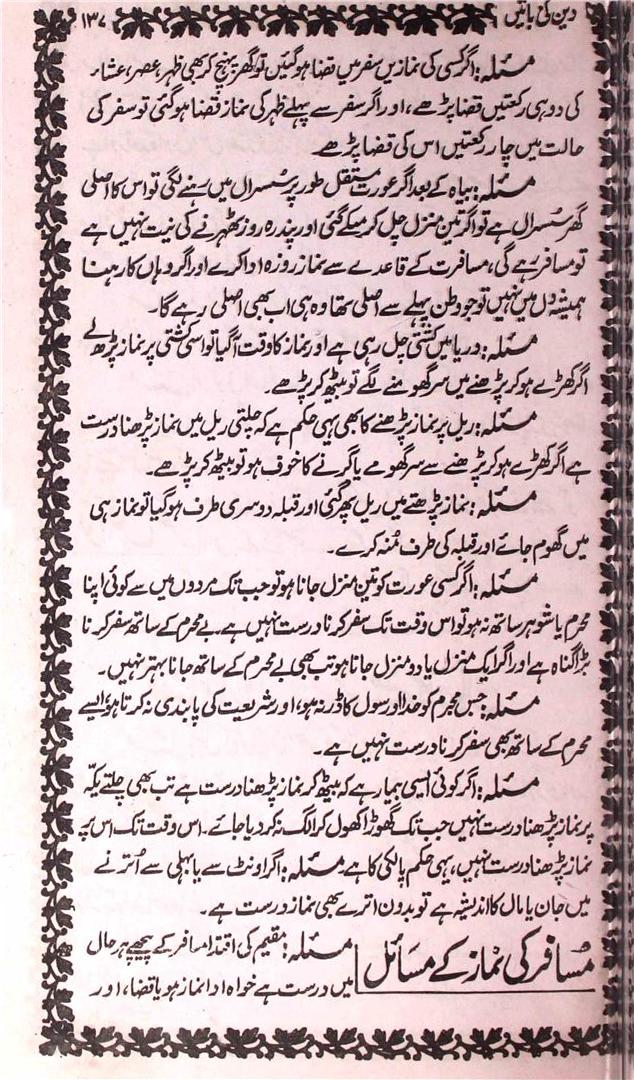 دین کی باتیں
۱۳۷
مسئلہ: اگر کسی کی نمازیں سفر میں قضا ہوگئیں تو گھر پہنچ کر بھی ظہر، عصر، عشاء
کی دو ہی رکعتیں قضا پڑھے، اور اگر سفر سے پہلے ظہر کی نماز قضا ہوگئی تو سفر کی
حالت میں چار رکعتیں اس کی قضا پڑھے۔
مسئلہ: بیاہ کے بعد اگر عورت مستقل طور پر سسرال میں رہنے لگی تو اس کا اصلی
گھر سسرال ہے تو اگر تین منزل چل کر میکے گئی اور پندرہ روز ٹھہرنے کی نیت نہیں ہے
تو مسافر رہے گی، مسافرت کے قاعدے سے نماز روزہ ادا کرے اور اگر وہاں کا رہنا
ہمیشہ دل میں نہیں تو جو وطن پہلے سے اصلی تھا وہ ہی اب بھی اصلی رہے گا۔
مسئلہ: دریا میں کشتی چل رہی ہے اور نماز کا وقت آگیا تو اسی کشتی پر نماز پڑھ لے
اگر کھڑے ہوکر پڑھنے میں سر گھومنے لگے تو بیٹھ کر پڑھے۔
مسئلہ: ریل پر نماز پڑھنے کا بھی یہی حکم ہے کہ چلتی ریل میں نماز پڑھنا درست
ہے اگر کھڑے ہوکر پڑھنے سے سر گھومے یا گرنے کا خوف ہو تو بیٹھ کر پڑھے۔
مسئلہ: نماز پڑھتے میں ریل پھر گئی اور قبلہ دوسری طرف ہوگیا تو نماز ہی
میں گھوم جائے اور قبلہ کی طرف منہ کرے۔
مسئلہ: اگر کسی عورت کو تین منزل جانا ہو تو جب تک مردوں میں سے کوئی اپنا
محرم یا شوہر ساتھ نہ ہو تو اس وقت تک سفر کرنا درست نہیں ہے۔ بے محرم کے ساتھ سفر کرنا
بڑا گناہ ہے اور اگر ایک منزل یا دو منزل جانا ہو تب بھی بے محرم کے ساتھ جانا بہتر نہیں۔
مسئلہ: جس محرم کو خدا اور رسول کا ڈر نہ ہو، اور شریعت کی پابندی نہ کرتا ہو، ایسے
محرم کے ساتھ بھی سفر کرنا درست نہیں ہے۔
مسئلہ: اگر کوئی ایسی بیمار ہے کہ بیٹھ کر نماز پڑھنا درست ہے تب بھی چلتے یکّہ
پر نماز پڑھنا درست نہیں جب تک گھوڑا کھول کر الگ نہ کر دیا جائے۔ اس وقت تک اس پر
نماز پڑھنا درست نہیں، یہی حکم پالکی کا ہے۔ مسئلہ: اگر اونٹ سے یا بہلی سے اُترنے
میں جان یا مال کا اندیشہ ہے تو بدون اترے بھی نماز درست ہے۔
مسافر کی نماز کے مسائل
مسئلہ: مقیم کی اقتدا مسافر کے پیچھے ہر حال
میں درست ہے خواہ ادا نماز ہو یا قضا، اور